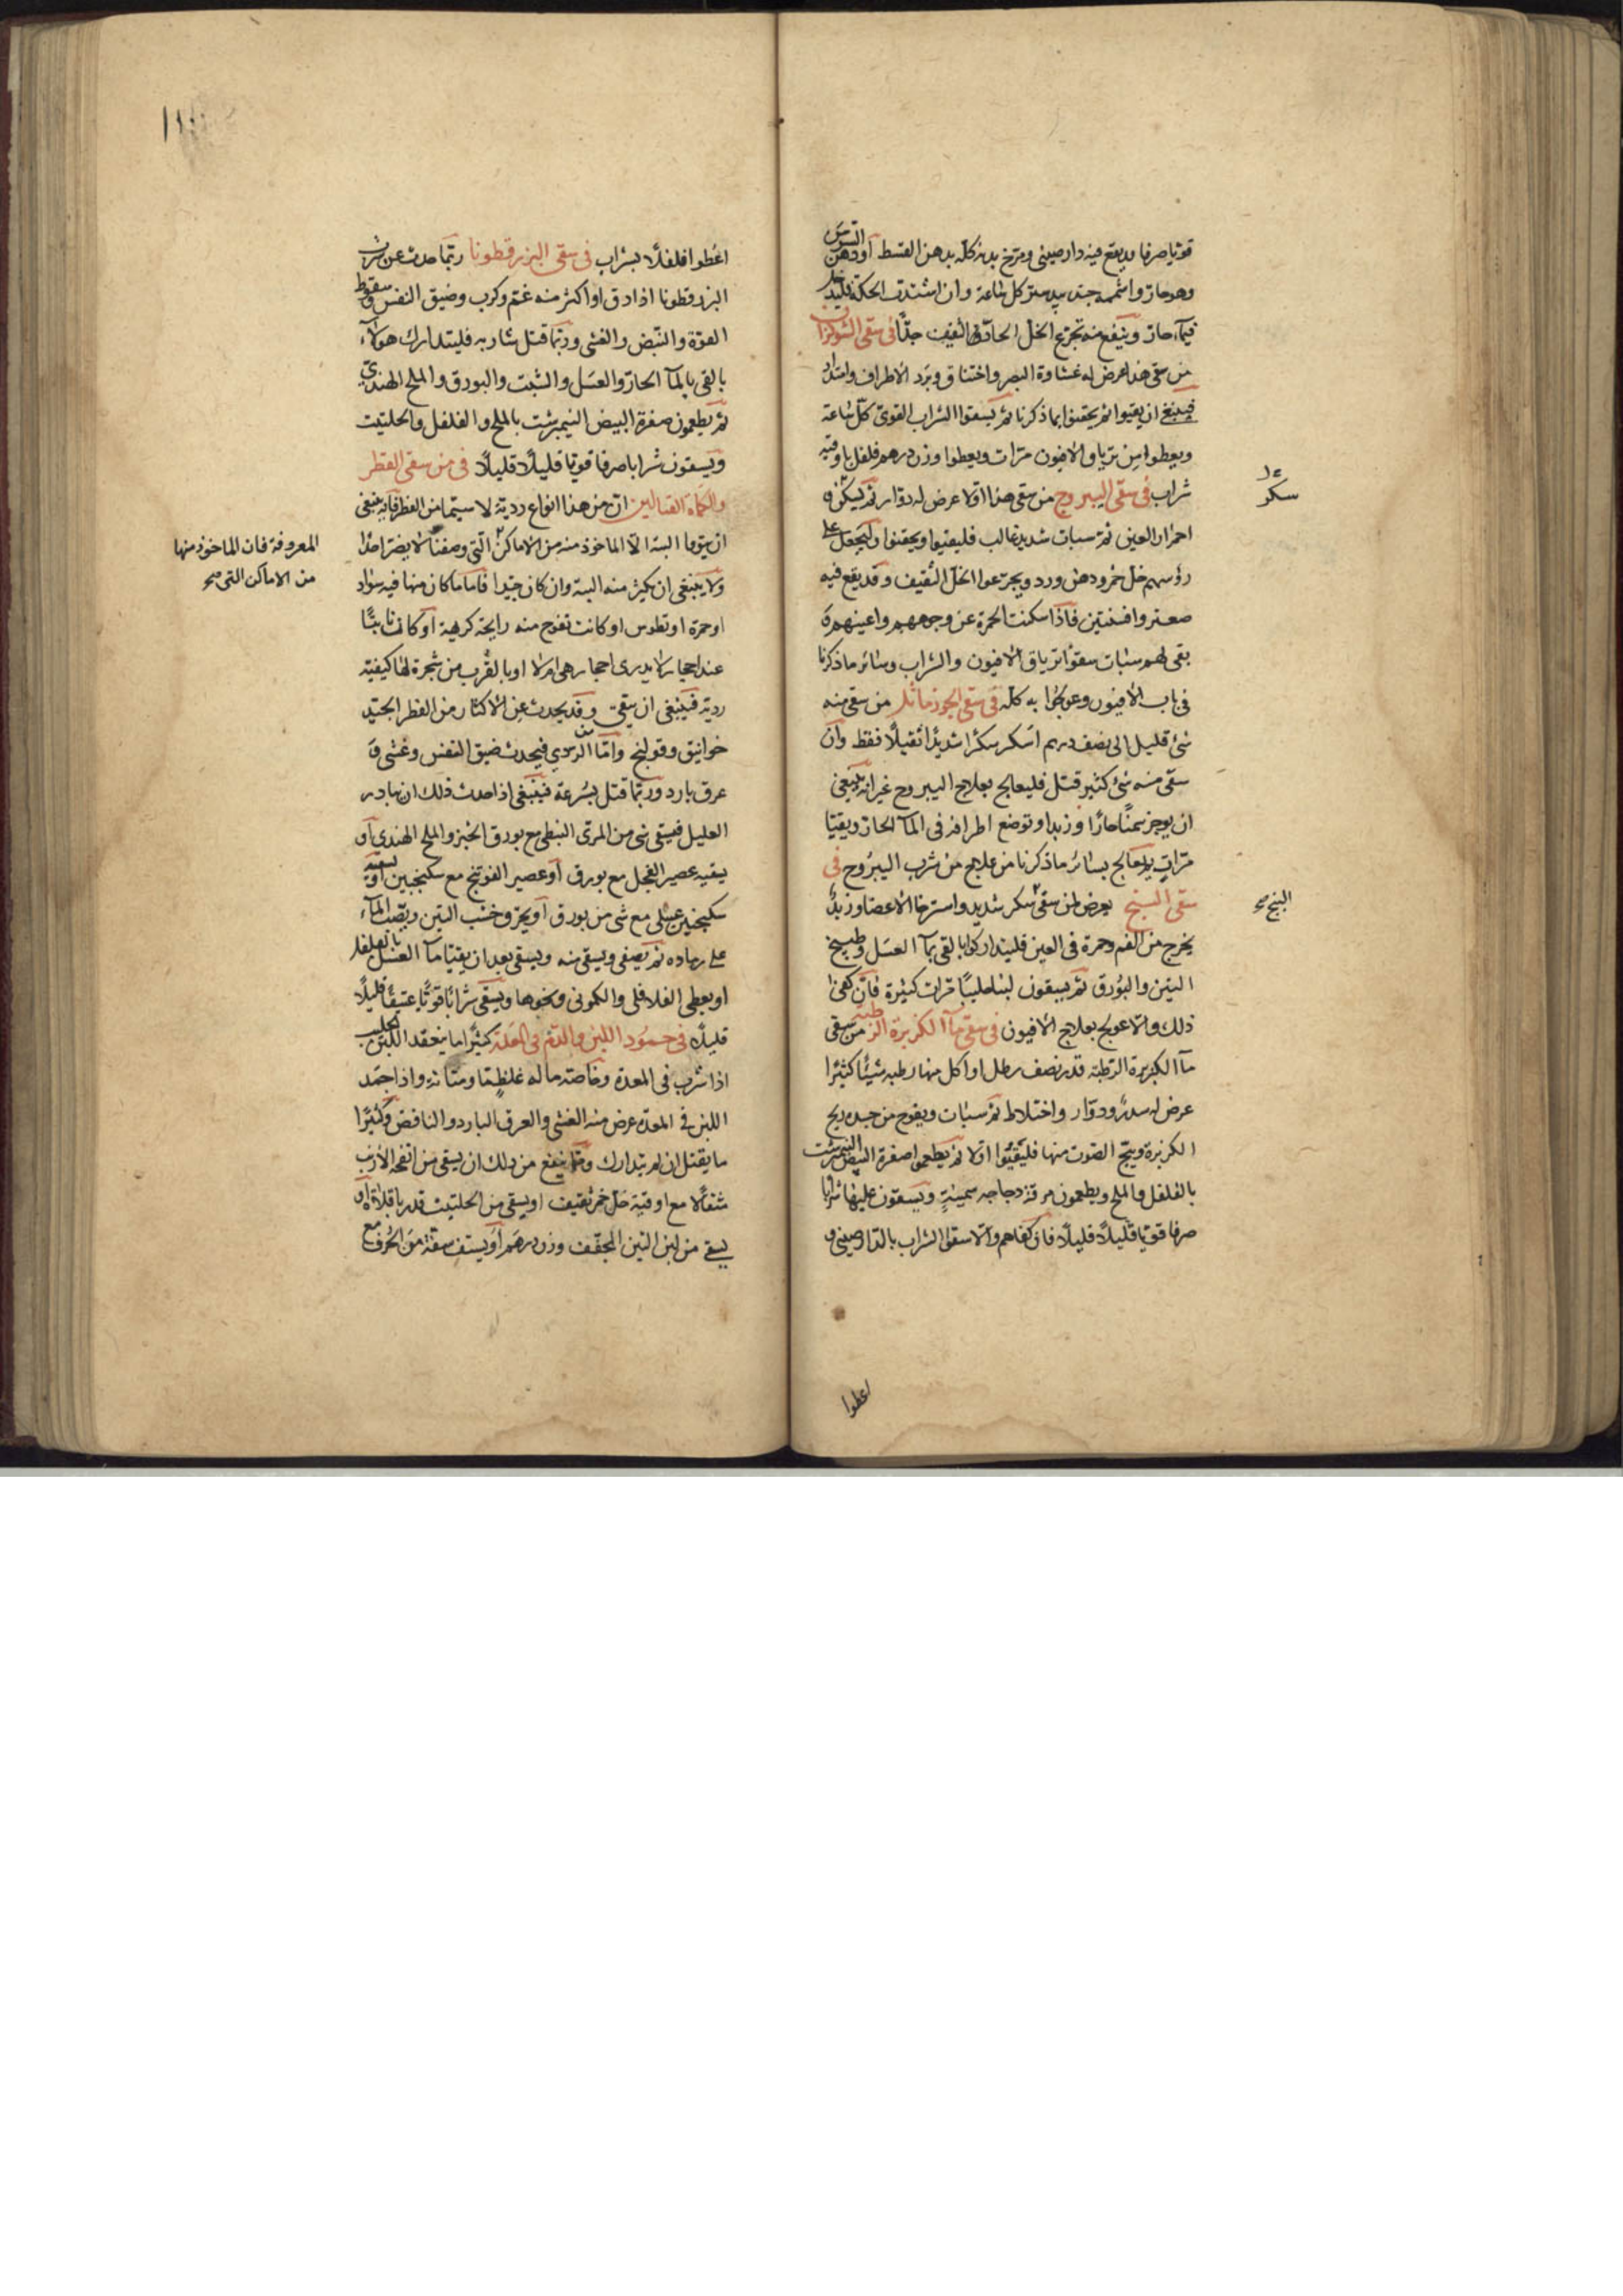 قويا صرفا ويقع فيه دارصيني ومرخ بدنه كله بدهن القسط او دهن السوسن
وهو حار واشممه جندبيدستر كل ساعة وان اشتدت الحكة فليدخل
في ماء حار وينفع منه تجريع الخل الحاذق الثقيف جدا في سقي الشوكران
من سقي هذا عرض له غشاوة البصر واختناق وبرد الاطراف وامتداد
فينبغي ان يقيوا ثم يحقنوا بما ذكرنا ثم يسقوا الشراب القوي كل ساعة
ويعطوا من ترياق الافيون مرات ويعطوا وزن درهم فلفل باوقية
شراب في سقي اليبروج من سقي هذا اولا عرض له دوار ثم سكر و
احمرار العين ثم سبات شديد غالب فليقيوا ويحقنوا وليجعل على
رؤسهم خل خمر ودهن ورد ويجرعوا الخل الثقيف وقد يقع فيه
صعتر وافسنتين فاذا سكنت الحمرة عن وجوههم واعينهم و
بقي لهم سبات سقوا ترياق الافيون والشراب وسائر ما ذكرنا
في باب الافيون وعولجوا به كله في سقي الجوز ماثل من سقي منه
شئ قليل الى نصف درهم اسكر سكرا شديدا ثقيلا فقط وان
سقي منه شئ كثير قتل فليعالج بعلاج اليبروح غير انه ينبغي
ان يوجر سمنا حارا وزبدا وتوضع اطرافه في الماء الحار ويقيا
مرات ويعالج بسائر ما ذكرنا من علاج من شرب اليبروح في
سقي البنج يعرض لمن سقي سكر شديد واسترخا الاعضا وزبد
يخرج من الفم وحمرة في العين فليتداركوا بالقي بماء العسل وطبيخ
التين والبورق ثم يسقون لبنا حليبا مرات كثيرة فان كفى
ذلك والا عولج بعلاج الافيون في سقي ماء الكزبرة الرطبة من سقي
ماء الكزبرة الرطبة قدر نصف رطل او اكل منها رطبه شيئا كثيرا
عرض له سدر ودوار واختلاط ثم سبات ويفوح من جسده ريح
الكزبرة ويبح الصوت منها فليقيئوا اولا ثم يطعموا صفرة البيض النيمبرشت
بالفلفل والملح ويطعمون مرقة دجاجه سمينة ويسقون عليها شرابا
صرفا قويا قليلا قليلا فان كفاهم والا سقوا الشراب بالدارصيني و
اعطوا
سكر
البنج صح
١١١
اعطوا فلفلا بشراب في سقي البزرقطونا ربما حدث عن شرب
البزرقطونا اذا دق او اكثر منه غم وكرب وضيق النفس وسقوط
القوة والنبض والغشي وربما قتل شاربه فليتدارك هولاء
بالقي بالماء الحار والعسل والشبت والبورق والملح الهندي
ثم يطعمون صفرة البيض النيمبرشت بالملح والفلفل والحلتيت
ويسقون شرابا صرفا قويا قليلا قليلا في من سقي الفطر
والكماة القتالين ان من هذا انواع ردية لا سيما من الفطر فانه ينبغي
ان يتوقا البتة الا الماخوذ منه من الاماكن التي وصفنا لا يضر احدا
ولا ينبغي ان يكثر منه البتة وان كان جيدا فاما ما كان منها فيه سواد
او حمرة او تطوس او كانت تفوح منه رايحة كريهة او كان نابتا
عند احجار لا يدرى احجار هي ام لا او بالقرب من شجرة لها كيفية
ردية فينبغي ان يتقى وقد يحدث عن الاكثار من الفطر الجيد
خوانيق وقولنج واما من الردي فيحدث ضيق النفس وغشي و
عرق بارد وربما قتل بسرعة فينبغي اذا حدث ذلك ان يبادر
العليل فيسقى شئ من المرى النبطي مع بورق الخبز والملح الهندي او
يسقيه عصير الفجل مع بورق او عصير الفوتنج مع سكنجبين او يسقيه
سكنجبين عسلي مع شئ من بورق او يحرق خشب التين ويصب الماء
على رماده ثم يصفى ويسقى منه ويسقى بعد ان يقيا ماء العسل بالفلفل
او يعطى الفلافلي والكموني ونحوها ويسقى شرابا قويا عتيقا قليلا
قليلا في جمود اللبن والدم في المعدة كثيرا ما ينعقد اللبن الحليب
اذا شرب في المعدة وخاصة ما له غلظ ما ومتانة واذا جمد
اللبن في المعدة عرض منه الغشي والعرق البارد والنافض وكثيرا
ما يقتل ان لم يتدارك ومما ينفع من ذلك ان يسقى من انفحة الارنب
مثقالا مع اوقية خل خمر ثقيف او يسقى من الحلتيت قدر باقلاة او
يسقى من لبن التين المجفف وزن درهم او يستف سفة من الحرف مع
المعروفة فان الماخوذ منها
من الاماكن التي صح